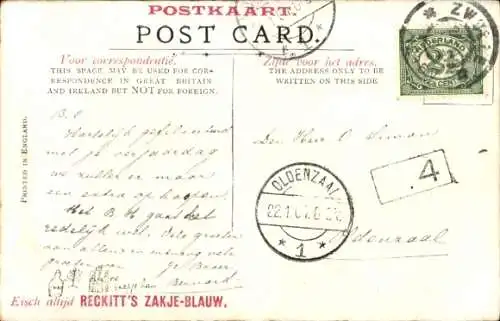 POSTKAART.
POST CARD.
Voor correspondentie.
THIS SPACE MAY BE USED FOR COR-
RESPONDENCE IN GREAT BRITAIN
AND IRELAND BUT NOT FOR FOREIGN.
Zijde voor het adres.
THE ADDRESS ONLY TO BE
WRITTEN ON THIS SIDE.
NEDERLAND
PRINTED IN ENGLAND.
Hartelijk gefeliciteerd
met je verjaardag
we zullen er maar
een extra op
Het B gaat het
redelijk wel. Vele groeten
aan allen in
groeten van je Broer
Bernard
Den Heer
Oldenzaal
4
OLDENZAAL
22.1.0
1
Eisch altijd RECKITT'S ZAKJE-BLAUW.